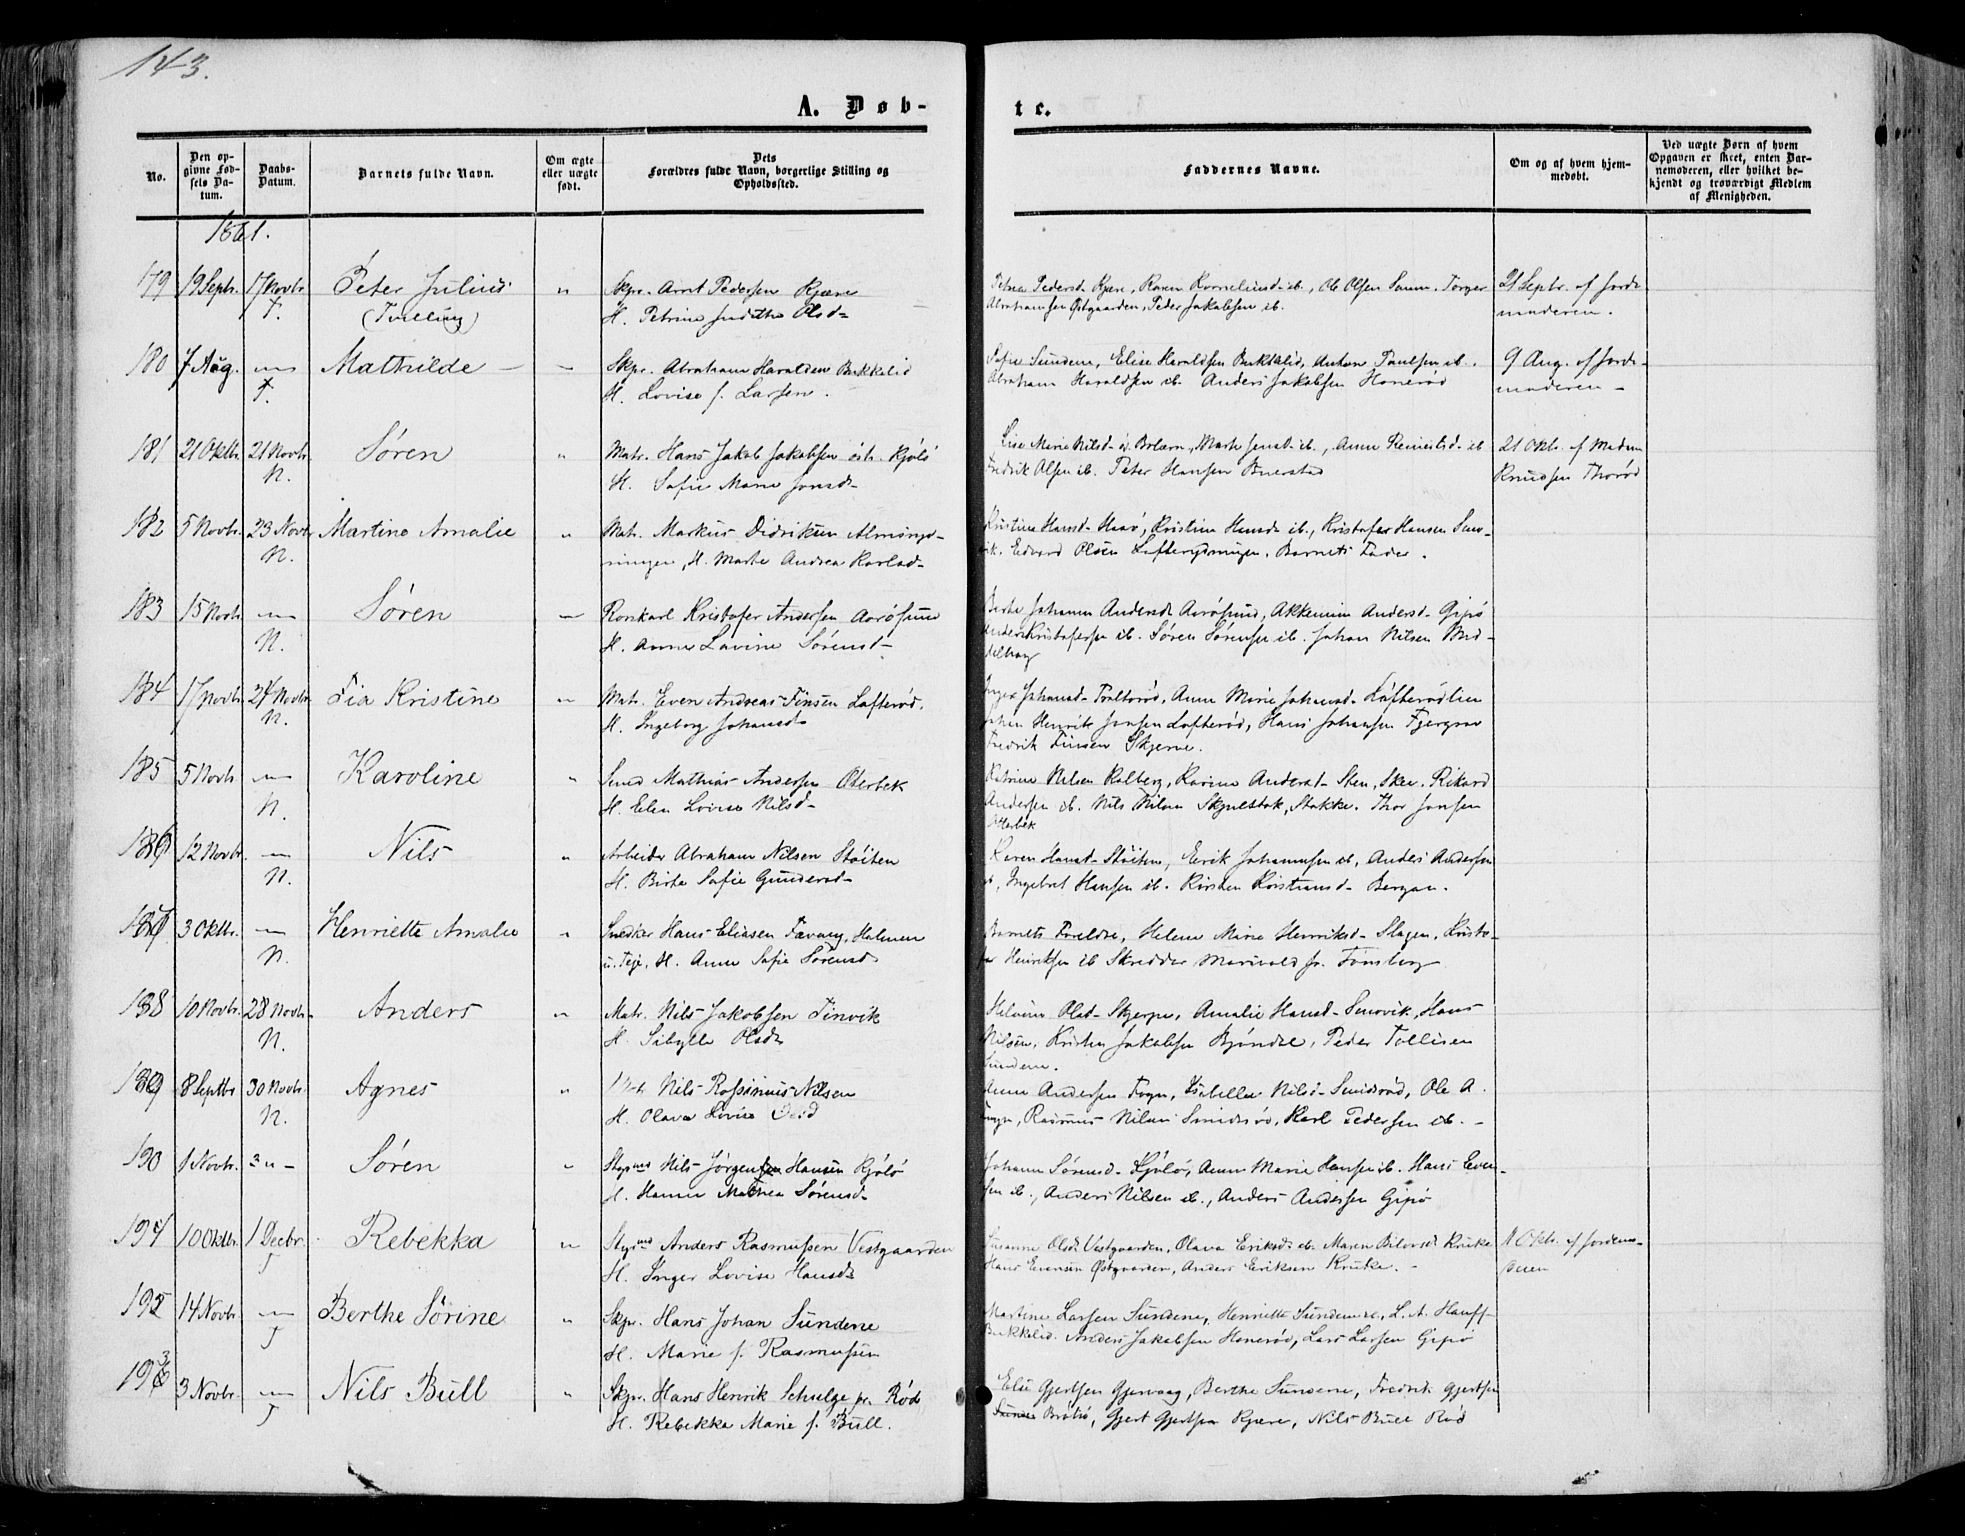 143.
A. Døb-
te.
No.
Den op-
givne Fød-
sels Da-
tum.
Daabs-
Datum.
Barnets fulde Navn.
Om ægte
eller uægte
født.
Dets
Forældres fulde Navn, borgerlige Stilling og
Opholdssted.
Faddernes Navne.
Om og af hvem hjem-
medøbt.
Ved uægte Børn af hvem
Opgaven er skeet, enten Bar-
nemoderen, eller hvilket be-
kjendt og troværdigt Medlem
af Menigheden.
1861.
179 19 Septr. 17 Novbr Peter Julius " Skpr. Arnt Pedersen Kjære Pedersd. Kjære, Karen Korneliusd. ib., Ole Olsen Torger 21 Septr. af Jorde
T. (Tvilling) H. Petrine Judithe Olsd- Abrahamsen Østgaarden, Peder Jakobsen ib. moderen.
180 7 Aug. " Mathilde - - Skpr. Abraham Haraldsen Bukkelid Sofie Sundene, Elise Haraldsen Bukkelid, Anton Paulsen ib. 9 Aug. af Jorde-
T. H. Lovise f. Larsen. Abraham Haraldsen ib. Anders Jakobsen Honerød moderen -
181 21 Oktbr. 21 Novbr. Søren " Matr. Hans Jakob Jakobsen østr. Kjølø Lise Marie Nilsd- Marte Jensd- ib., Anne ib 21 Okt. af Madm
N. H. Sofie Marie Jensd- Fredrik Olsen ib. Peter Hansen Knudsen Thorød
182 5 Novbr. 23 Novbr Martine Amalie " Matr. Markus Didriksen Almings- Kristine Hansd- Kristine Hansd- ib., Kristofer Hansen Smø-
N. ningen, H. Marte Andrea Karlsd- vik. Edvard Olsen Lofterydningen. Barnets Fader.
183 15 Novbr - Søren - Kristofer Andersen Aarøsund Berthe Johanne Andersd. Aarøsund, Andersd- Gipø
N. H. Anne Lavine Sørensd- Anders Kristofersen ib. Søren Sørensen ib. Johan Nilsen Mid-
delborg
184 17 Novbr. 24 Novbr. Fia Kristine " Matr. Even Andreas Finsen Lofterød. Johansd- Anne Marie Johansd- Lofterødlien
N. H. Ingeborg Johansd- Johan Henrik Jansen Lofterød, Hans Johansen
Fredrik Finsen Skjerve.
185 5 Novbr " Karoline " Smed Mathias Andersen Oterbek Katrine Nilsen Kalberg, Karine Andersd- Sten, Skee. Rikard
N. H. Elen Lovise Nilsd- Andersen ib. Nils Nilsen Stokke. Thor Jansen
Oterbek
186 12 Novbr. - Nils " Arbeider Abraham Nilsen Støiten Karen Hansd- Støiten, Erik Johannesen ib, Anders Andersen
N. H. Birte Sofie Gundersd- ib, Ingebret Hansen ib. Kirsten Kristiansd- Bergan.
187 3 Oktbr. - Henriette Amalie " Snedker Hans Eliasen Færang, Holmen Barnets Foreldre, Helene Marie Henriksd- Slagen, Kristo-
N. u. Teje, H. Anne Sofie Sørensd- fer Henriksen ib Skredder Tønsberg
188 10 Novbr. 28 Novbr- Anders " Matr. Nils Jakobsen Finvik Helvine Olsd- Skjerpe, Amalie Hansd- Smøvik, Hans
N. H. Sibylle Olsd- Nilsen, Kristen Jakobsen Bjøndal, Peder Tollesen
Sundene.
189 8 Septbr 30 Novbr. Agnes " Nils Rasmus Nilsen Anne Andersen Fogn, Isabelle Nilsd- Smidsrød, Ole A.
N. H. Olava Lovise Fogn, Rasmus Nilsen Smidsrød, Karl Pedersen ib. -
190 1 Novbr. 3 " - Søren " Styrmd Nils Jørgensen Hansen Kjølø Johanne Sørensd- Kjølø, Anne Marie Hansen ib. Hans Even-
H. Hanne Mathea Sørensd- sen ib., Anders Nilsen ib., Anders Andersen Gipø
191 10 Oktbr. 1 Decbr. Rebekka " Styrmd Anders Rasmussen Vestgaarden Susanne Olsd. Vestgaarden, Olava Eriksd. ib. Maren Kruke Oktbr. af Jordem-
T H. Inger Lovise Hansd- Hans Evensen Østgaarden, Anders Eriksen Kruke. - oderen
192 14 Novbr. " Berthe Sørine " Skpr. Hans Johan Sundene Martine Larsen Sundene, Henriette Sundene ib, L. A. Hauff
T H. Marie f. Rasmussen Bukkelid. Anders Jakobsen Honerød, Lars Larsen Gipø
193 3 Novbr. " Nils Bull " Skpr. Hans Henrik Schulze pr. Rød Elie Gjertsen Gjervaag, Berthe Sundene, Fredrik Gjertsen
T H. Rebekka Marie f. Bull. Bratø, Gjert Gjertsen Kjære, Nils Bull Rød